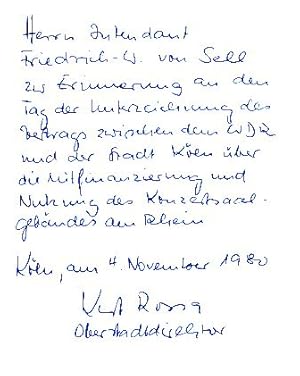 Herrn Intendant
Friedrich-W. von Sell
zur Erinnerung an den
Tag der Unterzeichnung des
Vertrags zwischen dem WDR
und der Stadt Köln über
die Mitfinanzierung und
Nutzung des Konzertsaal-
gebäudes am Rhein
Köln, am 4. November 1980
Kurt Rossa
Oberstadtdirektor